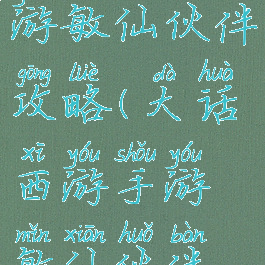 游敏仙伙伴
gōng lüè dà huà
攻略(大话
xī yóu shǒu yóu
西游手游
mǐn xiān huǒ bàn
敏仙伙伴